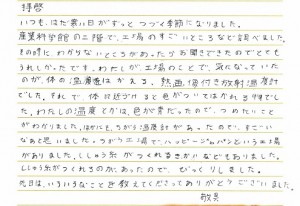 拝啓
いつも、はだ寒い日がずっとつづく季節になりました。
産業科学館の二階で、工場のすごいところなど調べました。
その時に、わからないところがあったからお聞きできたのでとても
うれしかったです。わたしが、工場のことで、気になっていた
のが、体の温度がはかえる、熱画像付き放射温度計
でした。それで体に近づけると色がついてはかれる
でした。わたしの温度とかは、色が素だったので、つめたいこと
がわかりました。ほかにも、ちがう温度計があったので、すごい
なぁと思いました。つぎに工場でハッピーじるパンという工場
がありました。ししゅう糸がつくれるきかいなどもありました。
ししゅう糸がつくれるのか、あったので、びっくりしました。
先日は、いろいろなことを教えてくださってありがとうございました。
敬具